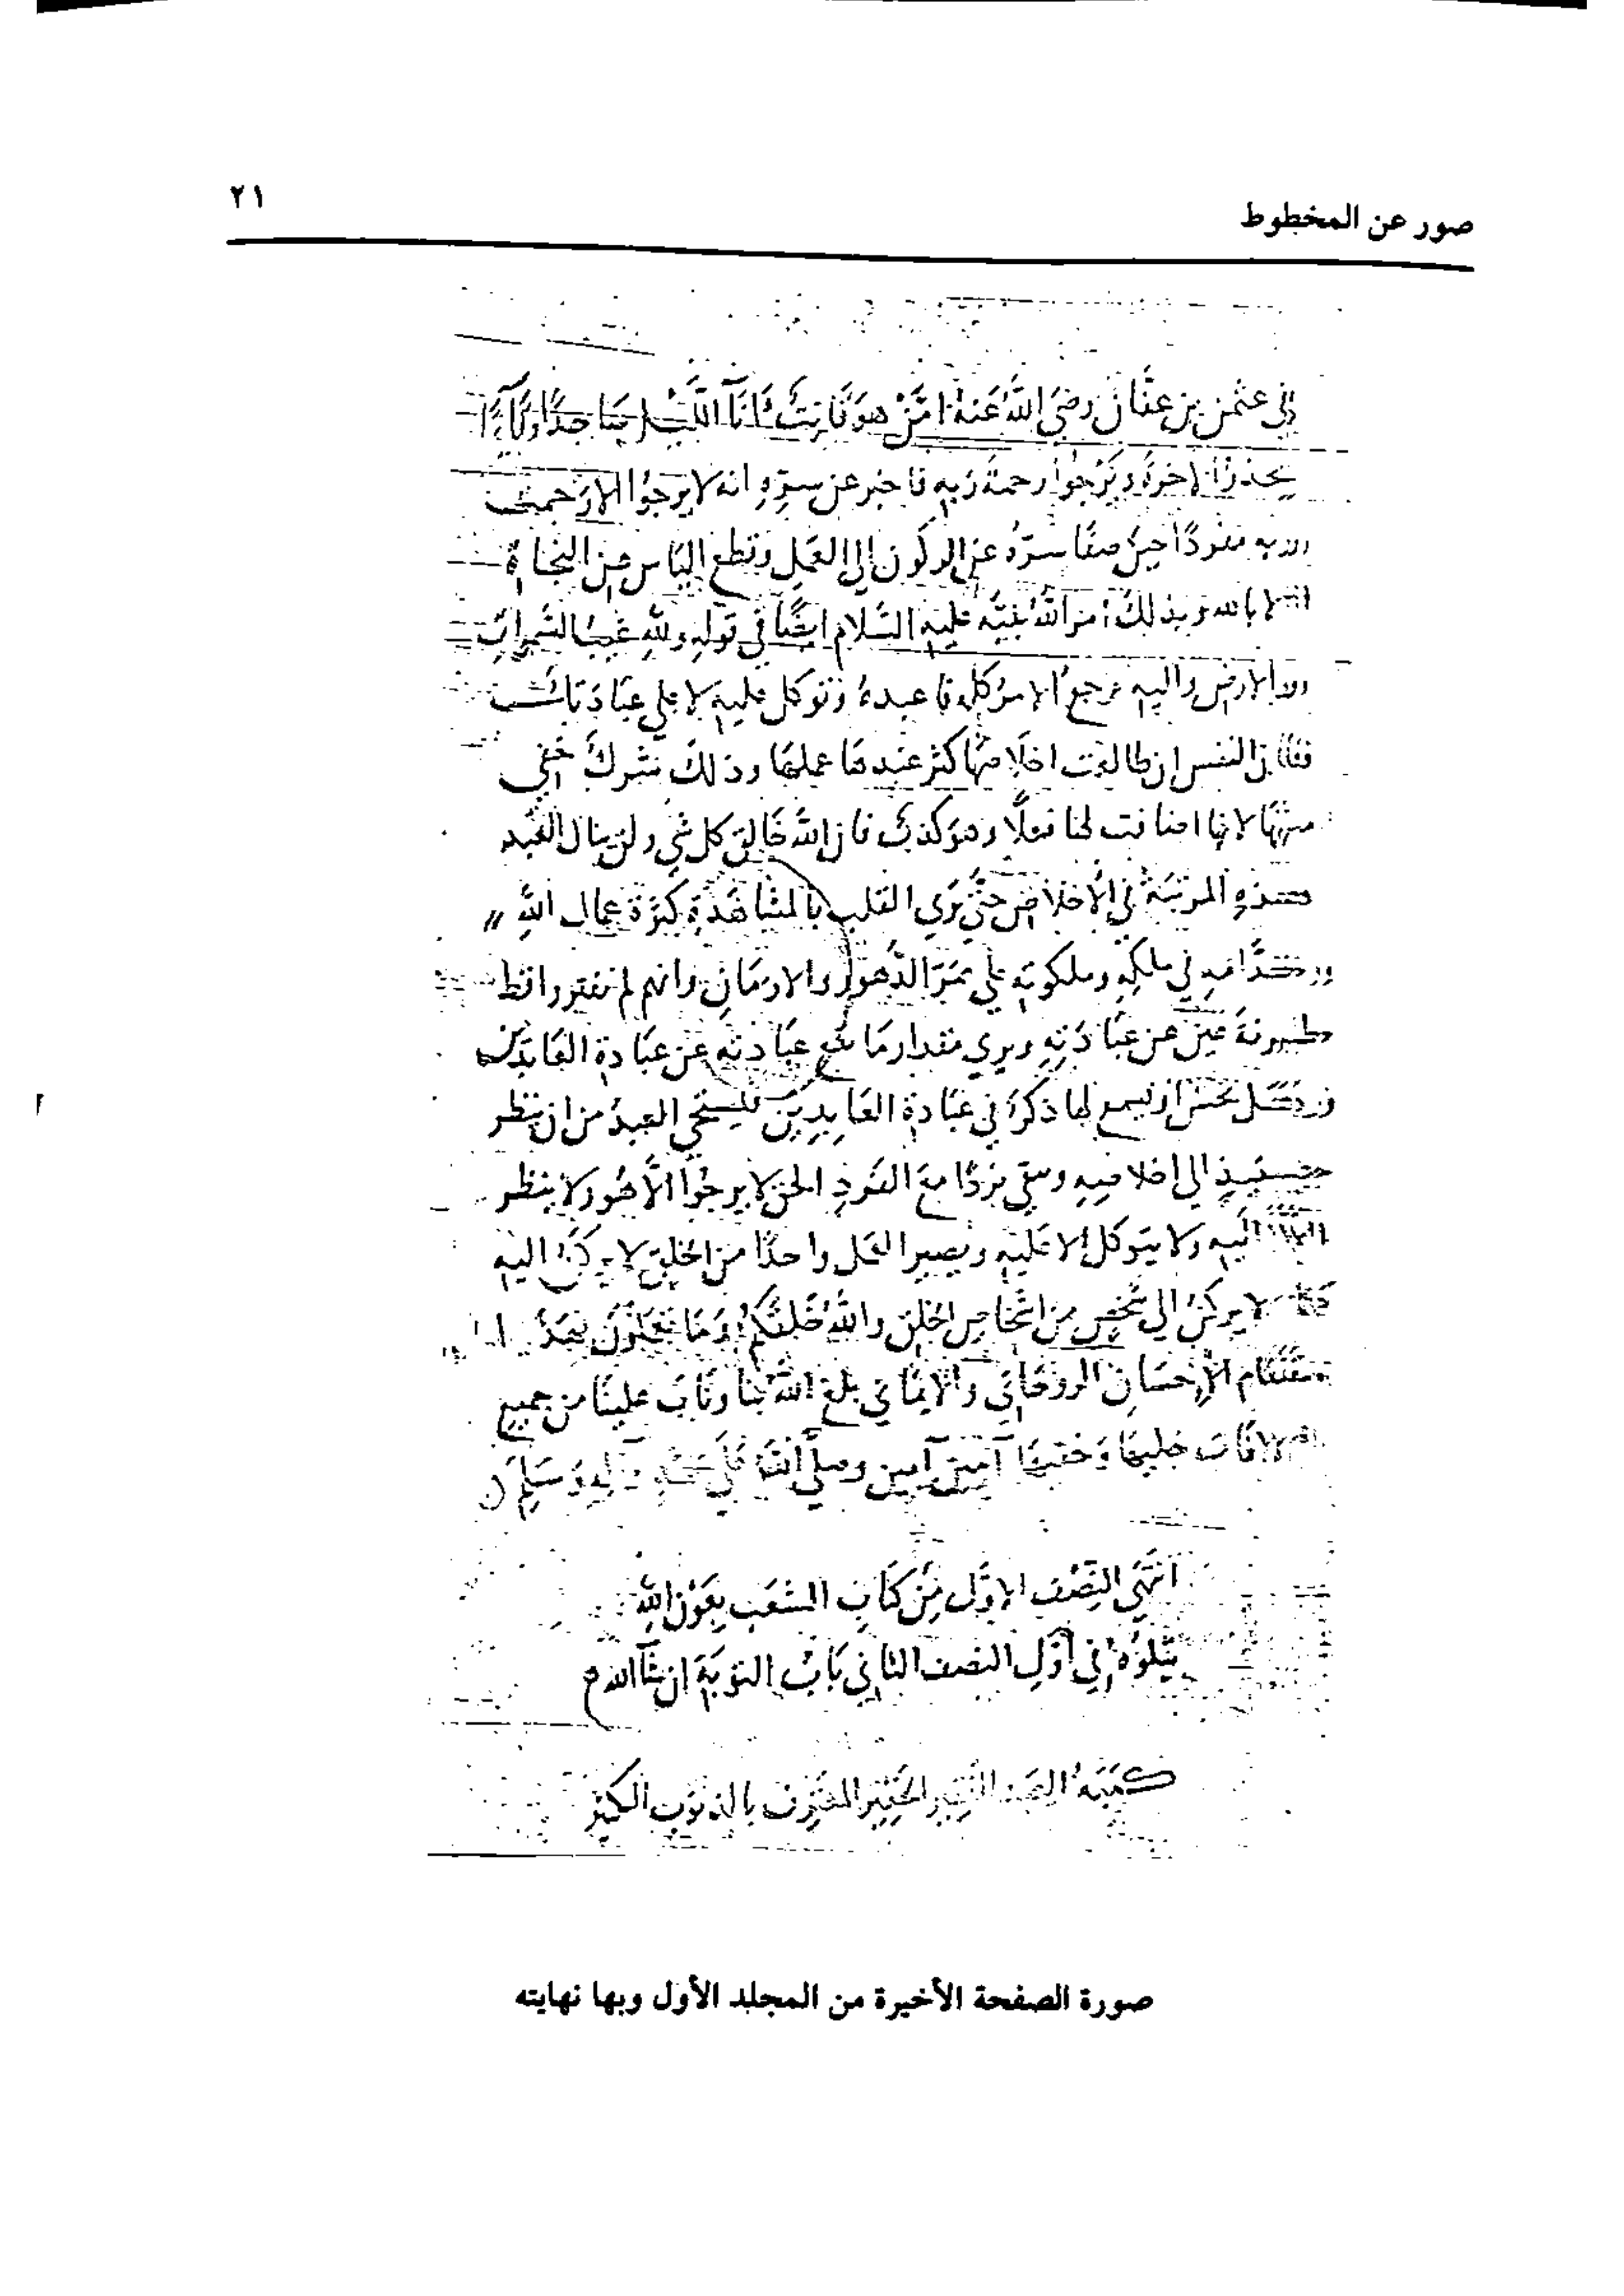 صور عن المخطوط
٢١
في عثمن بن عفان رضي الله عنه امن هو قانت اناآ الليل ساجدا وقآئما
يحذر الاخرة ويرجوا رحمة ربه فاخبر عن سره انه لا يرجوا الا رحمت
ربه منفردا حين صفا سره عن الركون الى العمل وقطع الياس عن النجاة
الا بالله وبذلك امر الله نبيه عليه السلام ايضا في قوله ولله غيب السموات
والارض واليه يرجع الامر كله فاعبده وتوكل عليه لا على عبادتك
فان النفس ان طالعت اخلاصها كثر عندها عملها وذلك شرك خفي
منها لانها اضافت لها فعلا وهو كذب فان الله خالق كل شي ولن ينال العبد
هذه المرتبة في الاخلاص حتى يرى القلب بالمشاهدة كثرة عمال الله
وخدامه في ملكه وملكوته على ممر الدهور والازمان وانهم لم يفتروا قط
طرفة عين عن عبادته ويرى مقدار ما تقع عبادته عن عبادة العابدين
وهل تحسن ان يسمع لها ذكرا في عبادة العابدين فليستحي العبد من ان ينظر
حينيذ الى اخلاصه وبقي فردا مع الفرد الحق لا يرجوا الا هو ولا ينظر
الا اليه ولا يتوكل الا عليه ويصير العمل واحدا من الخلق لا يركن اليه
كما لا يركن الى شخص من اشخاص الخلق والله خلقكم وما تعملون
مقام الاحسان الروحاني والايماني بلغ الله بنا وتاب علينا من جميع
الافات جليها وخفيها آمين آمين وصلى الله على محمد وآله وسلم
انتهى النصف الاول من كتاب الشعب بعون الله
يتلوه في اول النصف الثاني باب التوبة ان شآ الله
كتبه العبد الفقير الحقير المعترف بالذنوب الكثير
صورة الصفحة الأخيرة من المجلد الأول وبها نهايته